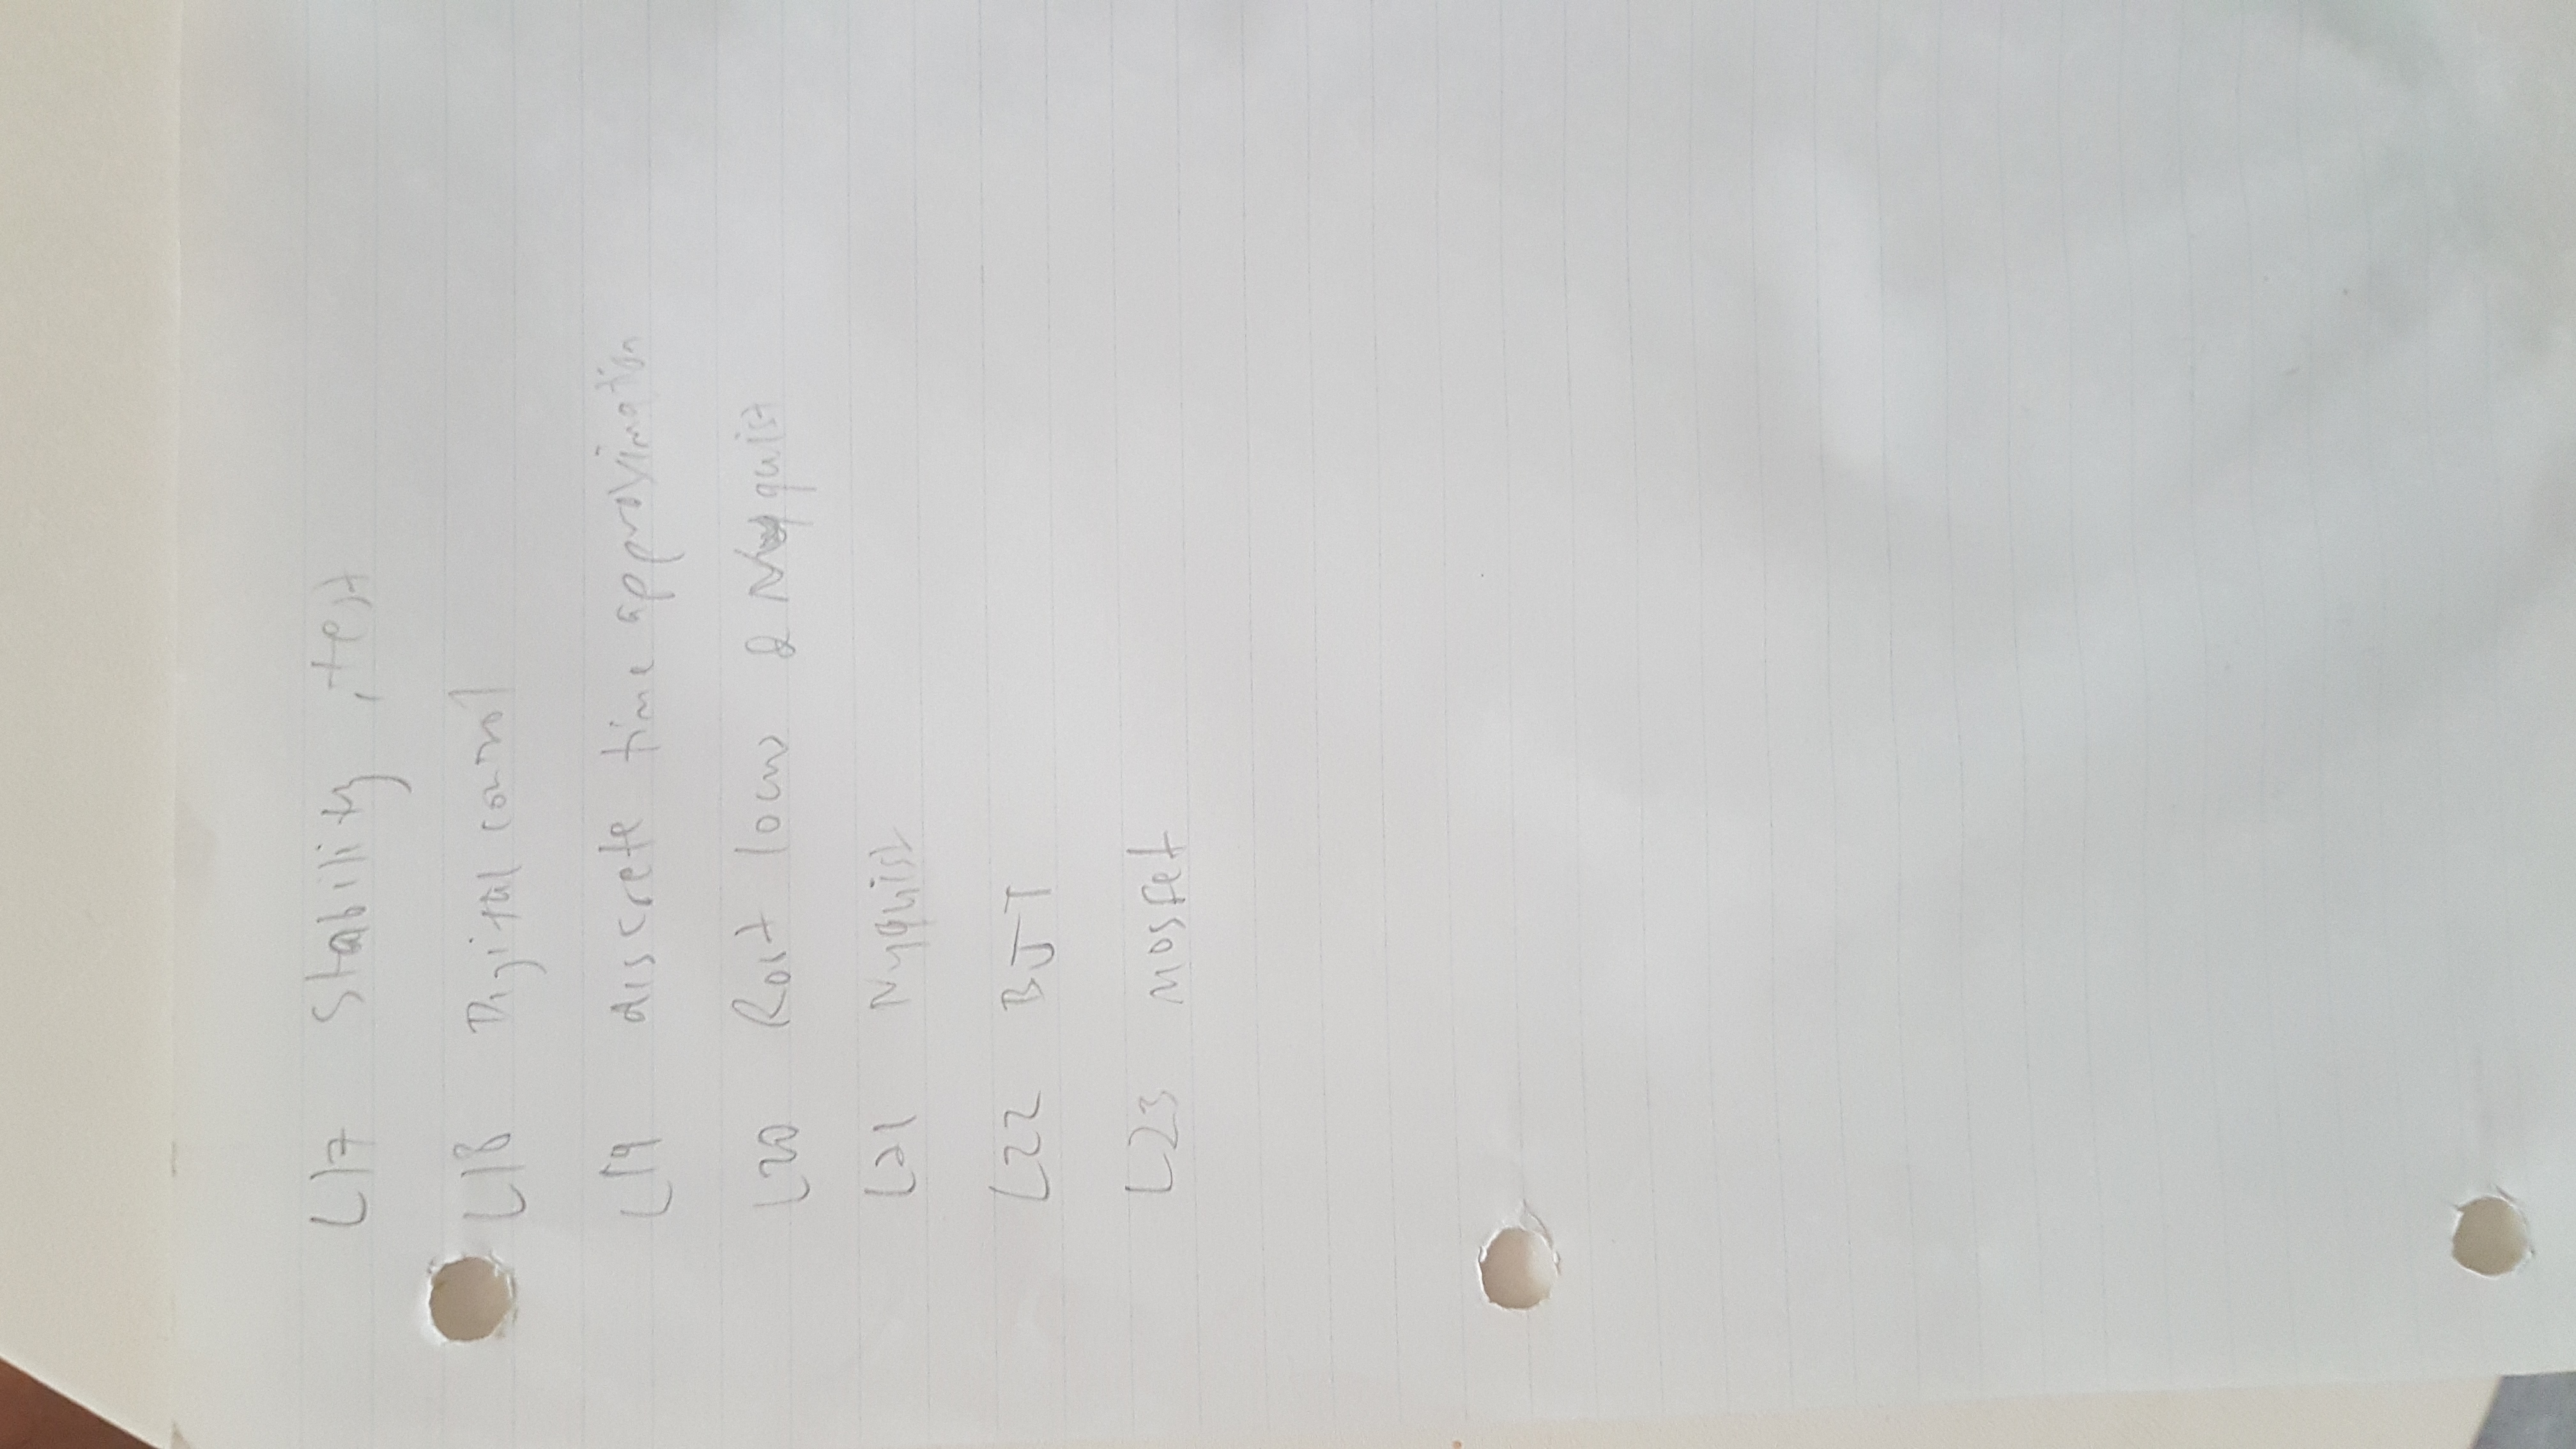 L17 Stability, test
L18 Digital control
L19 discrete time approximation
L20 Root locus & Nyquist
L21 Nyquist
L22 BJT
L23 Mosfet